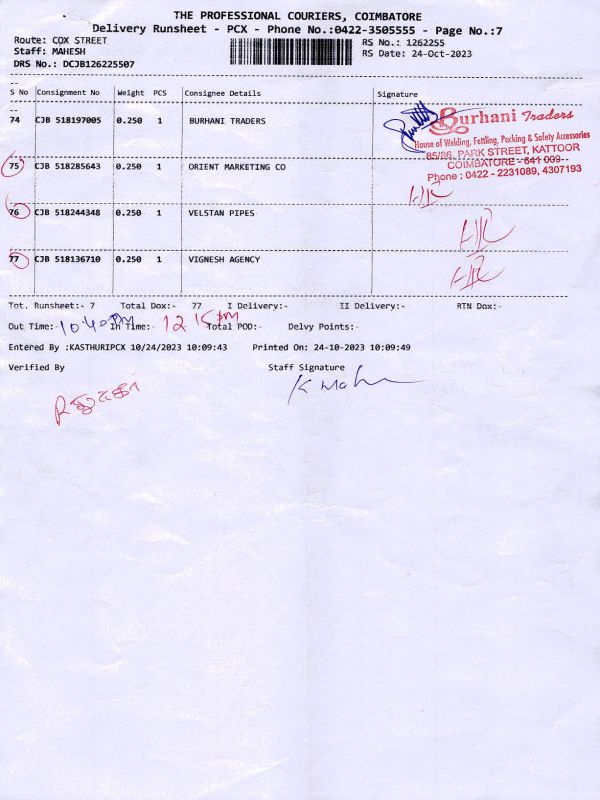 THE PROFESSIONAL COURIERS, COIMBATORE
Delivery Runsheet - PCX - Phone No.:0422-3505555 - Page No.:7
Route: COX STREET
RS No.: 1262255
Staff: MAHESH
RS Date: 24-Oct-2023
DRS No.: DCJB126225507
S No Consignment No Weight PCS Consignee Details Signature
74 CJB 518197005 0.250 1 BURHANI TRADERS
Burhani Traders
House of Welding, Fettling, Packing & Safety Accessories
85/86, PARK STREET, KATTOOR
COIMBATORE - 641 009
Phone : 0422 - 2231089, 4307193
75 CJB 518285643 0.250 1 ORIENT MARKETING CO
76 CJB 518244348 0.250 1 VELSTAN PIPES
77 CJB 518136710 0.250 1 VIGNESH AGENCY
Tot. Runsheet:- 7 Total Dox:- 77 I Delivery:- II Delivery:- RTN Dox:-
Out Time:- 10 40 AM In Time:- 12 15 PM Total POD:- Delvy Points:-
Entered By :KASTHURIPCX 10/24/2023 10:09:43 Printed On: 24-10-2023 10:09:49
Verified By Staff Signature
K Mah